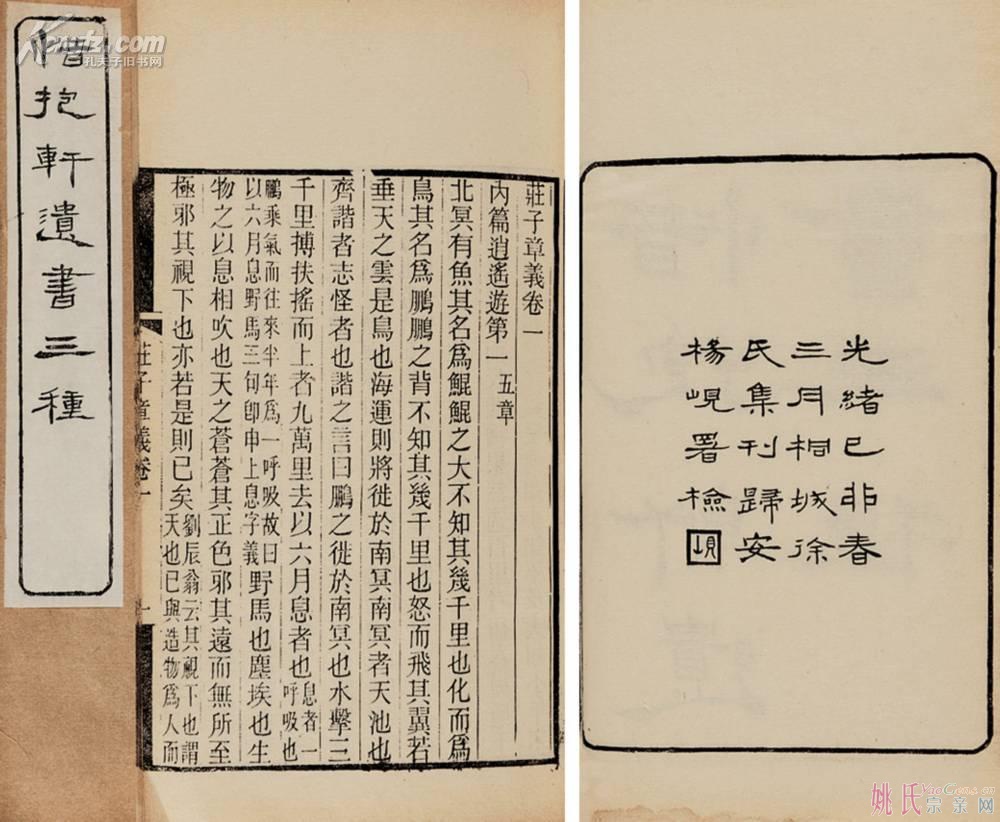 惜抱軒遺書三種
光緒己卯春
三月桐城徐
氏集刊歸安
楊峴署檢
莊子章義卷一
內篇逍遙遊第一 五章
北冥有魚其名爲鯤鯤之大不知其幾千里也化而爲
鳥其名爲鵬鵬之背不知其幾千里也怒而飛其翼若
垂天之雲是鳥也海運則將徙於南冥南冥者天池也
齊諧者志怪者也諧之言曰鵬之徙於南冥也水擊三
千里搏扶搖而上者九萬里去以六月息者也 息者一呼吸也
鵬乘氣而往來半年爲一呼吸故曰以六月息野馬三句卽申上息字義 野馬也塵埃也生
物之以息相吹也天之蒼蒼其正色邪其遠而無所至
極邪其視下也亦若是則已矣 劉辰翁云其視下也謂天也已與造物爲人而
莊子章義卷一
一
孔夫子旧书网
姚氏宗亲网